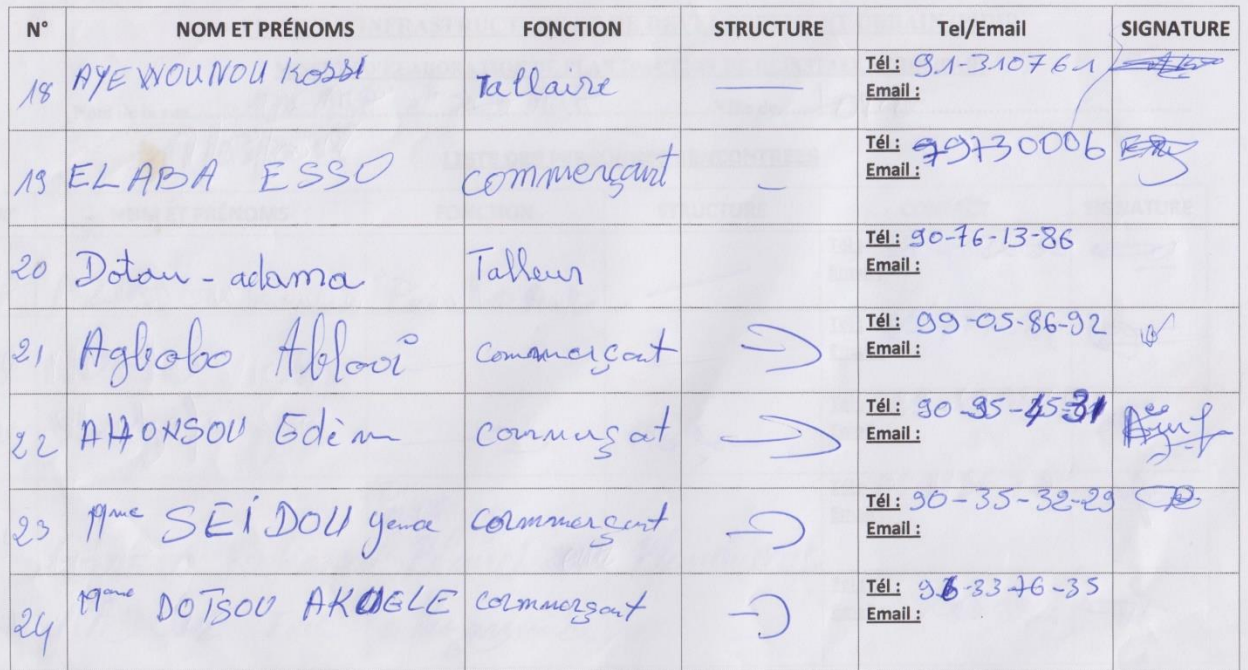 N° NOM ET PRÉNOMS FONCTION STRUCTURE Tel/Email SIGNATURE
18 AYEWOUNOU Kossi Tallaire — Tél : 91-310761
Email :
19 ELABA ESSO commerçant – Tél : 99730006
Email :
20 Dotou - adama Talleur Tél : 90-76-13-86
Email :
21 Agbobo Ablavi commerçat Tél : 99-05-86-92
Email :
22 AHONSOU Edèm commerçat Tél : 90-95-45-31
Email :
23 Mme SEIDOU commerçant Tél : 90-35-32-29
Email :
24 Mme DOTSOU AKOGLE commerçant Tél : 91-33-76-35
Email :